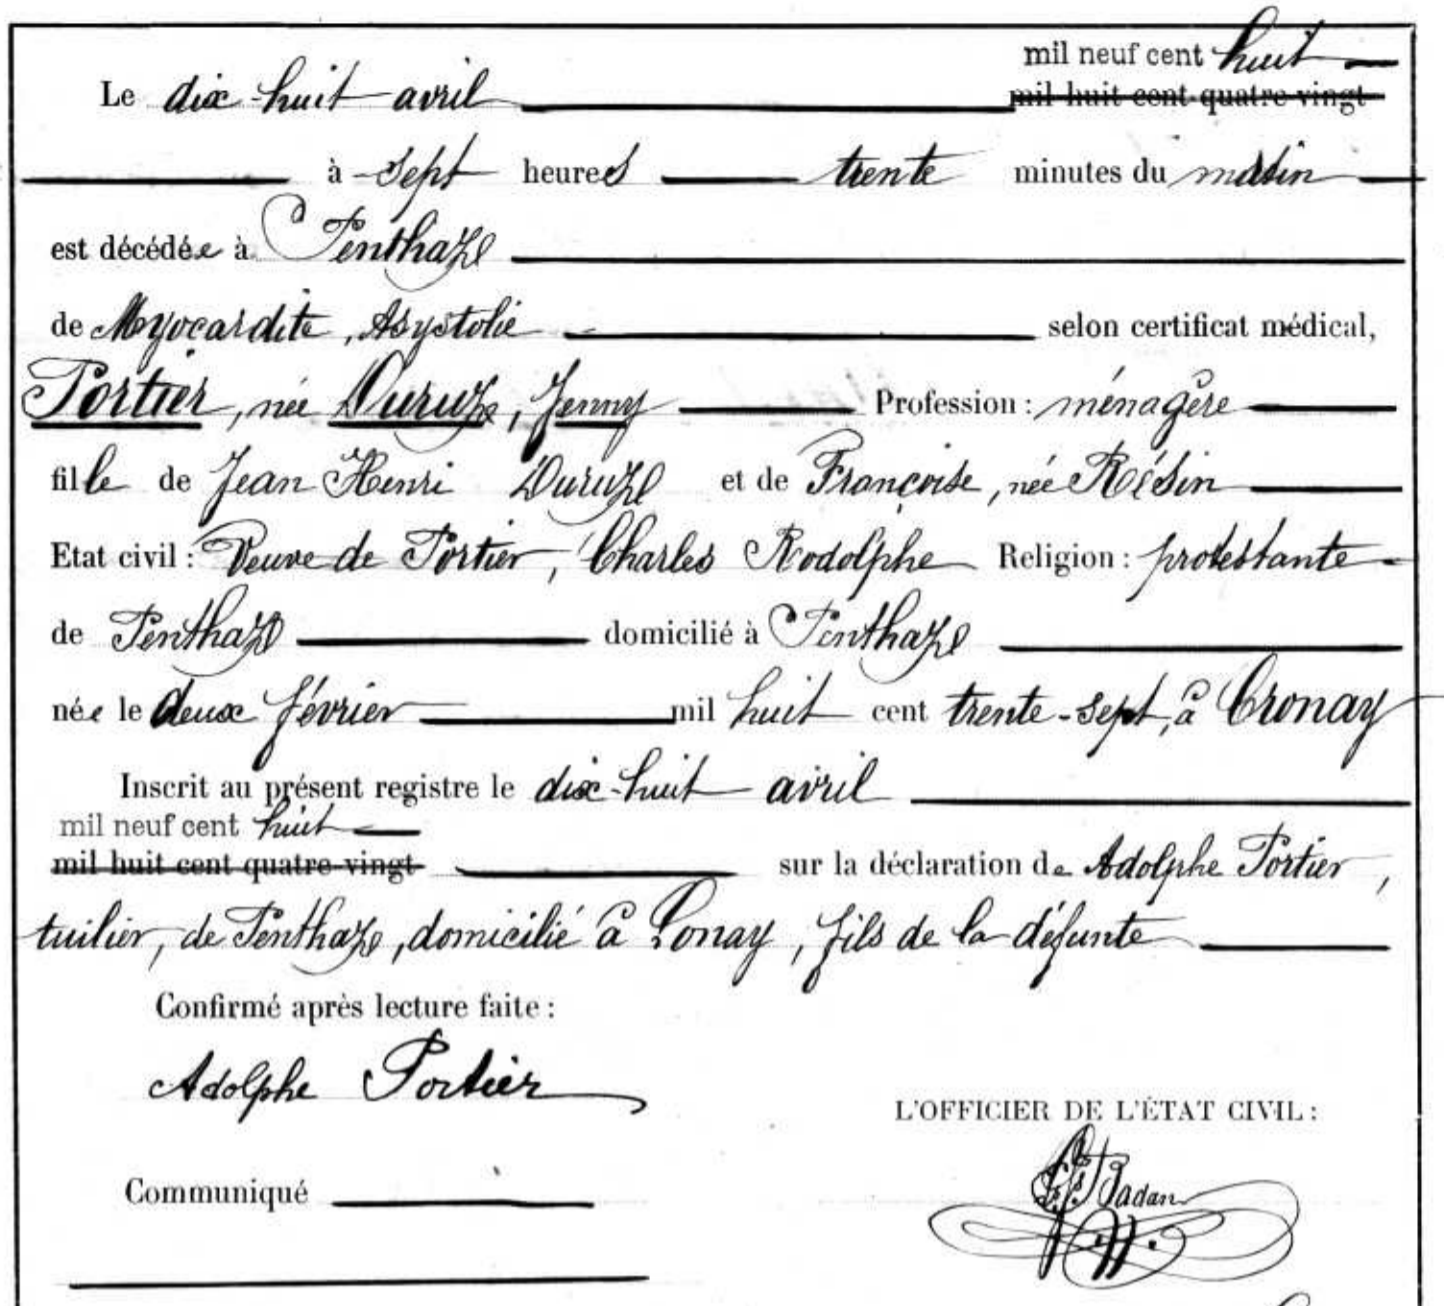 mil neuf cent huit
Le dix-huit avril mil huit cent quatre-vingt
à sept heures trente minutes du matin
est décédée à Penthaz
de Myocardite, Asystolie selon certificat médical,
Portier, née Duruz, Jenny Profession : ménagère
fille de Jean Henri Duruz et de Françoise, née Résin
Etat civil : Veuve de Portier, Charles Rodolphe Religion : protestante
de Penthaz domicilié à Penthaz
née le deux février mil huit cent trente-sept, à Cronay
Inscrit au présent registre le dix-huit avril
mil neuf cent huit
mil huit cent quatre-vingt sur la déclaration de Adolphe Portier,
tuilier, de Penthaz, domicilié à Lonay, fils de la défunte
Confirmé après lecture faite :
Adolphe Portier
L'OFFICIER DE L'ÉTAT CIVIL :
Communiqué Badan